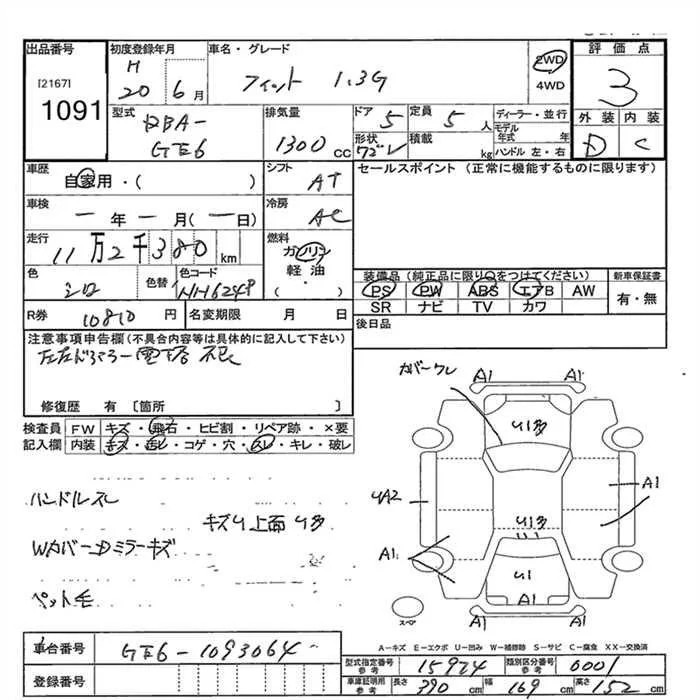 出品番号
[2167]
1091
初度登録年月
H
20 6月
車名・グレード
フィット 1.3G
2WD
4WD
評価点
3
外装 内装
D C
型式
DBA-
GE6
排気量
1300 cc
ドア
5
形状
定員
5人
積載
kg
ディーラー・並行
モデル
年式 年
ハンドル 左・右
車歴
自家用・( )
シフト
AT
セールスポイント(正常に機能するものに限ります)
車検
一年一月(一日)
冷房
AC
走行
11万2千380km
燃料
ガソリン
軽油
( ・ )
色
シロ
色替
色コード
NH624P
装備品(純正品に限り○をつけてください)
PS PW ABS エアB AW
SR ナビ TV カワ
新車保証書
有・無
R券
10810円
名変期限 月 日
後日品
注意事項申告欄(不具合内容等は具体的に記入して下さい)
修復歴 有 [箇所 ]
検査員
記入欄
FW キズ・飛石・ヒビ割・リペア跡・×要
内装 キズ・汚レ・コゲ・穴・スレ・キレ・破レ
ハンドルスレ
キズ凹上面凹多
Wカバー・Dミラーキズ
ペット毛
カバーワレ
A1 A1
凹多
UA2
A1
凹多
A1
凹
A1
スペア
A1
A1
A-キズ E-エクボ U-凹み W-補修跡 S-サビ C-腐食 XX-交換済
車台番号
GE6-1093064
登録番号
型式指定番号
参考
15924
類別区分番号
参考
0001
車庫証明用
参考
長さ
390cm
幅
169cm
高さ
152cm